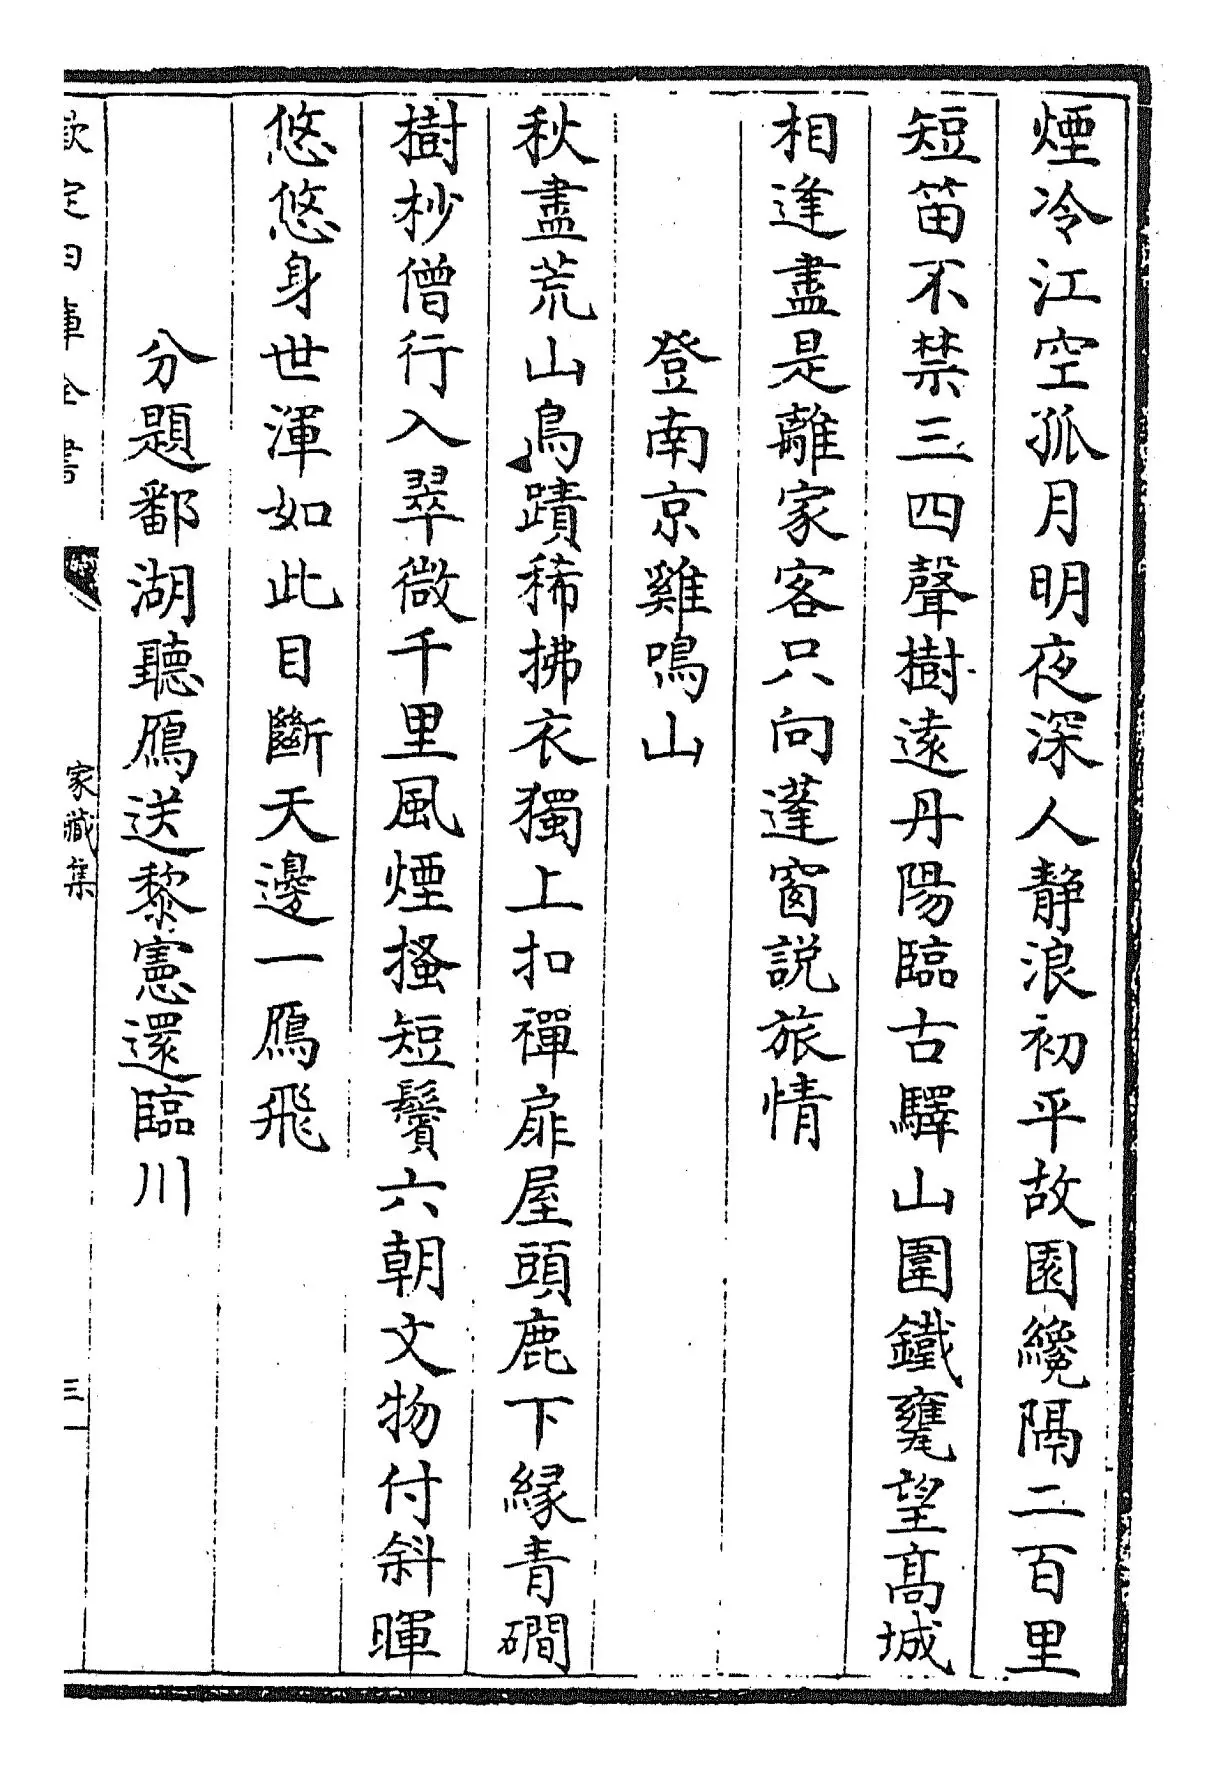 煙冷江空孤月明夜深人静浪初平故園纔隔二百里
短笛不禁三四聲樹遠丹陽臨古驛山圍鐵甕望髙城
相逢盡是離家客只向蓬窗説旅情
登南京雞鳴山
秋盡荒山鳥蹟稀拂衣獨上扣禪扉屋頭鹿下緣青磵
樹杪僧行入翠微千里風煙搔短鬢六朝文物付斜暉
悠悠身世渾如此目斷天邊一鴈飛
分題鄱湖聽鴈送黎憲還臨川
欽定四庫全書
家藏集
三一